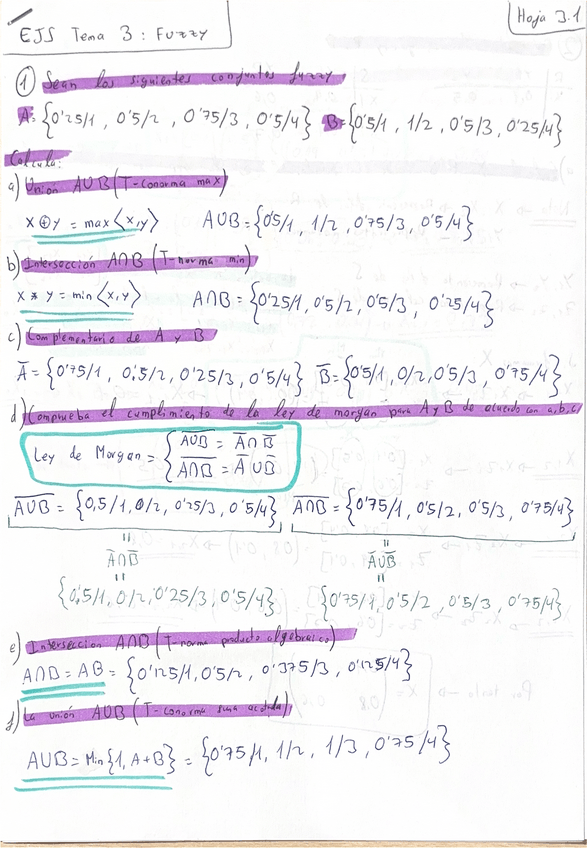 Hoja 3.1
EJS Tema 3: Fuzzy
① Sean los siguientes conjuntos fuzzy
A = {0'25/1, 0'5/2, 0'75/3, 0'5/4} B = {0'5/1, 1/2, 0'5/3, 0'25/4}
Calcula:
a) Unión A∪B (T-conorma max)
x ⊕ y = max<x,y> A∪B = {0'5/1, 1/2, 0'75/3, 0'5/4}
b) Intersección A∩B (T-norma min)
x * y = min<x,y> A∩B = {0'25/1, 0'5/2, 0'5/3, 0'25/4}
c) Complementario de A y B
A̅ = {0'75/1, 0'5/2, 0'25/3, 0'5/4} B̅ = {0'5/1, 0/2, 0'5/3, 0'75/4}
d) Comprueba el cumplimiento de la ley de morgan para A y B de acuerdo con a,b,c
Ley de Morgan = { A̅∪̅B̅ = A̅ ∩ B̅
A̅∩̅B̅ = A̅ ∪ B̅
A̅∪̅B̅ = {0,5/1, 0/2, 0'25/3, 0'5/4} A̅∩̅B̅ = {0'75/1, 0'5/2, 0'5/3, 0'75/4}
= =
A̅∩B̅ A̅∪B̅
= =
{0'5/1, 0/2, 0'25/3, 0'5/4} {0'75/1, 0'5/2, 0'5/3, 0'75/4}
e) Interseccion A∩B (T-norma producto algebraico)
A∩B = AB = {0'125/1, 0'5/2, 0'375/3, 0'125/4}
f) La unión A∪B (T-conorma suma acotada)
A∪B = Min{1, A+B} = {0'75/1, 1/2, 1/3, 0'75/4}